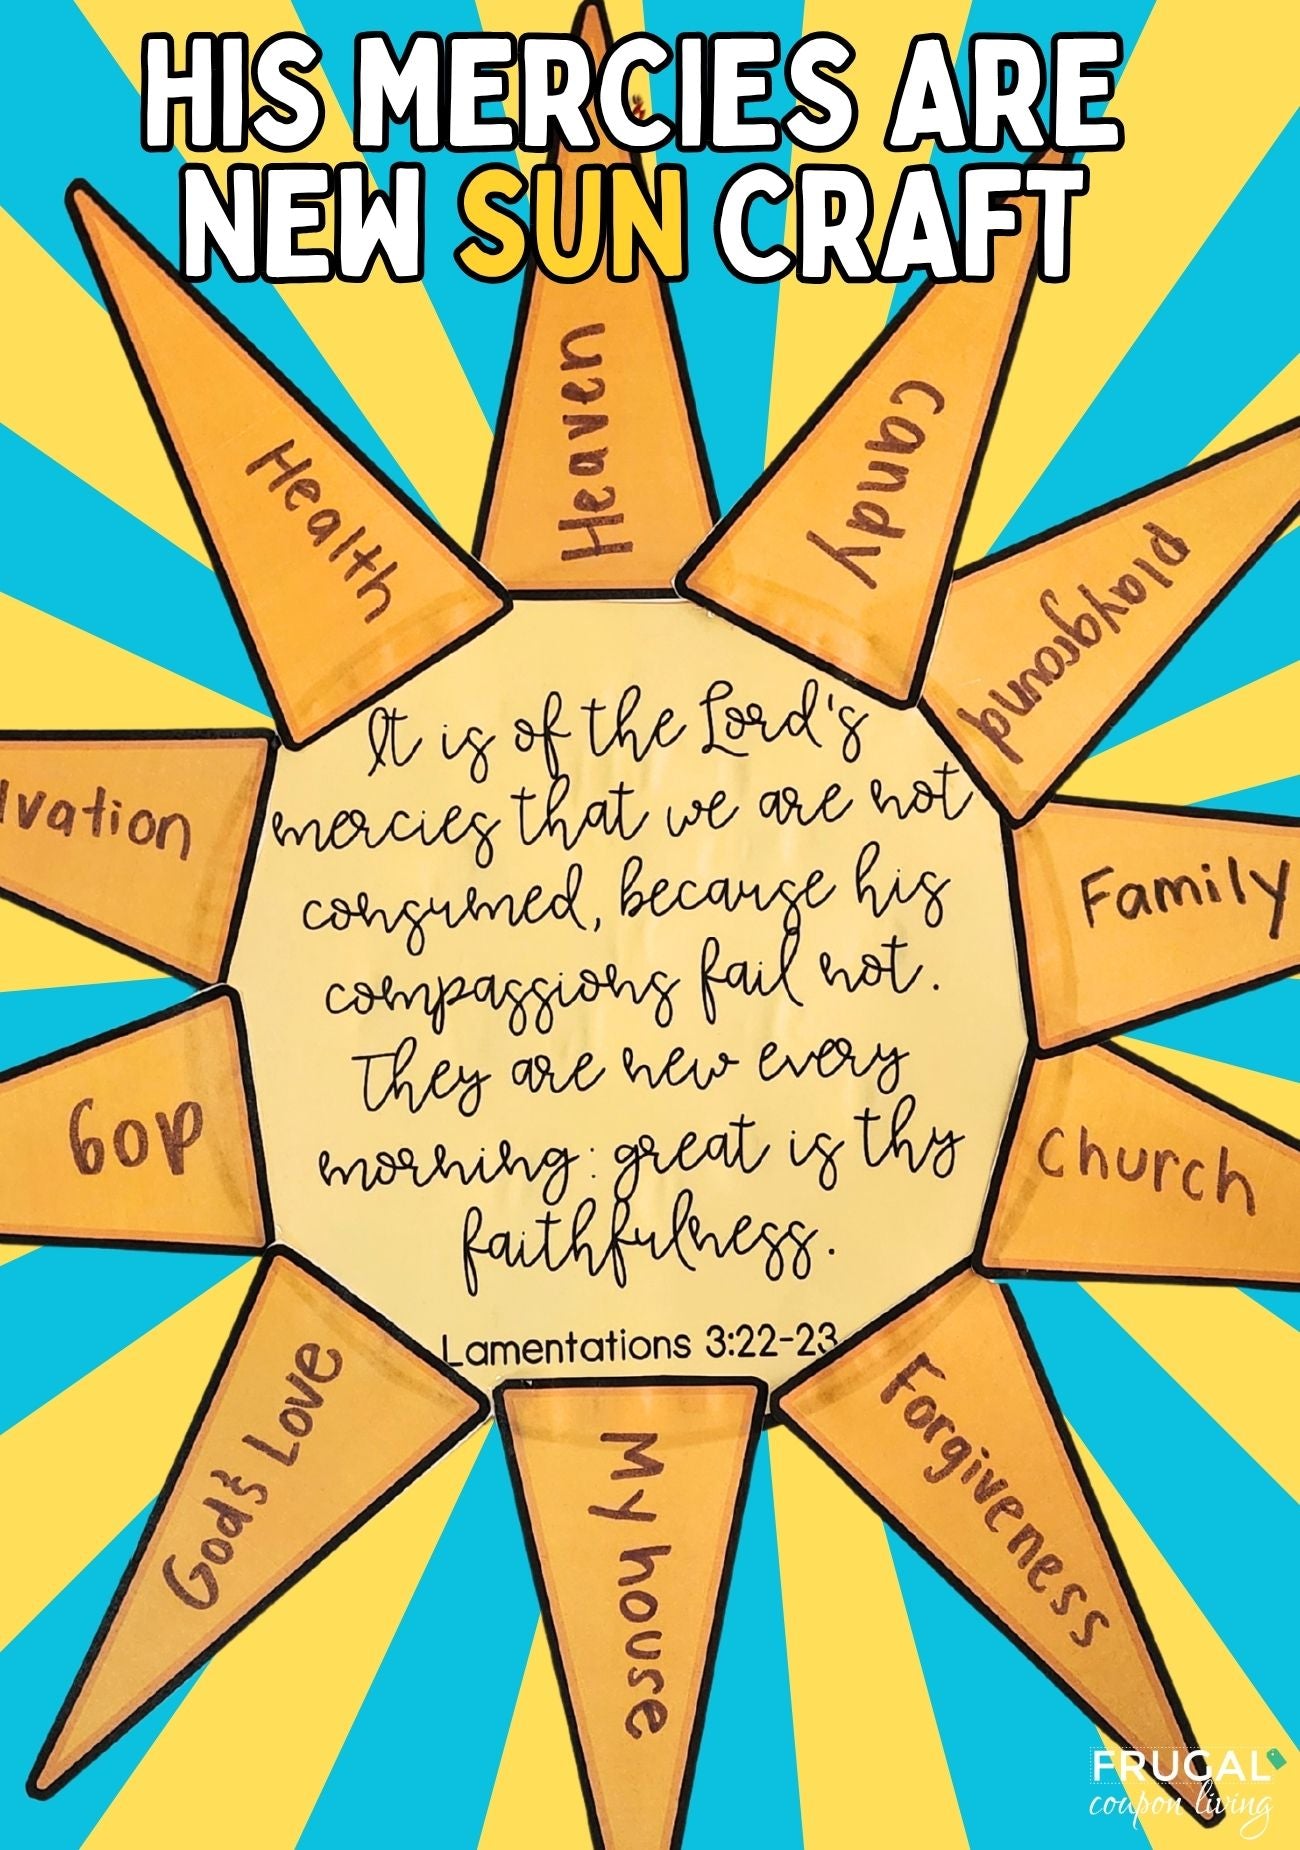 HIS MERCIES ARE
NEW SUN CRAFT
Heaven
candy
Health
playground
It is of the Lord's
mercies that we are not
consumed, because his
compassions fail not.
They are new every
morning: great is thy
faithfulness.
Lamentations 3:22-23
lvation
Family
dog
church
God's Love
My house
Forgiveness
FRUGAL
coupon living